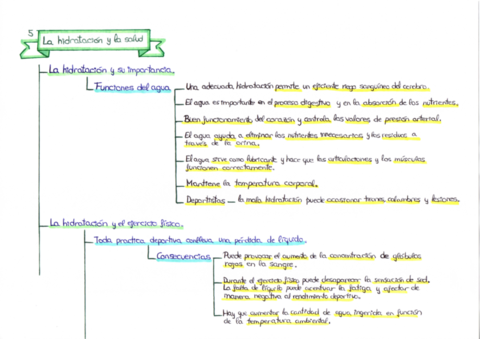 5
La hidratación y la salud
La hidratación y su importancia.
Funciones del agua
Una adecuada hidratación permite un eficiente riego sanguíneo del cerebro.
El agua es importante en el proceso digestivo y en la absorción de los nutrientes.
Buen funcionamiento del corazón y controla los valores de presión arterial.
El agua ayuda a eliminar los nutrientes innecesarios y los residuos a
través de la orina.
El agua sirve como lubricante y hace que las articulaciones y los músculos
funcionen correctamente.
Mantiene la temperatura corporal.
Deportistas — la mala hidratación puede ocasionar tirones, calambres y lesiones.
La hidratación y el ejercicio físico.
Toda practica deportiva conlleva una pérdida de líquido.
Consecuencias
Puede provocar el aumento de la concentración de glóbulos
rojos en la sangre.
Durante el ejercicio físico puede desaparecer la sensación de sed.
La falta de líquido puede acentuar la fatiga y afectar de
manera negativa al rendimiento deportivo.
Hay que aumentar la cantidad de agua ingerida en función
de la temperatura ambiental.